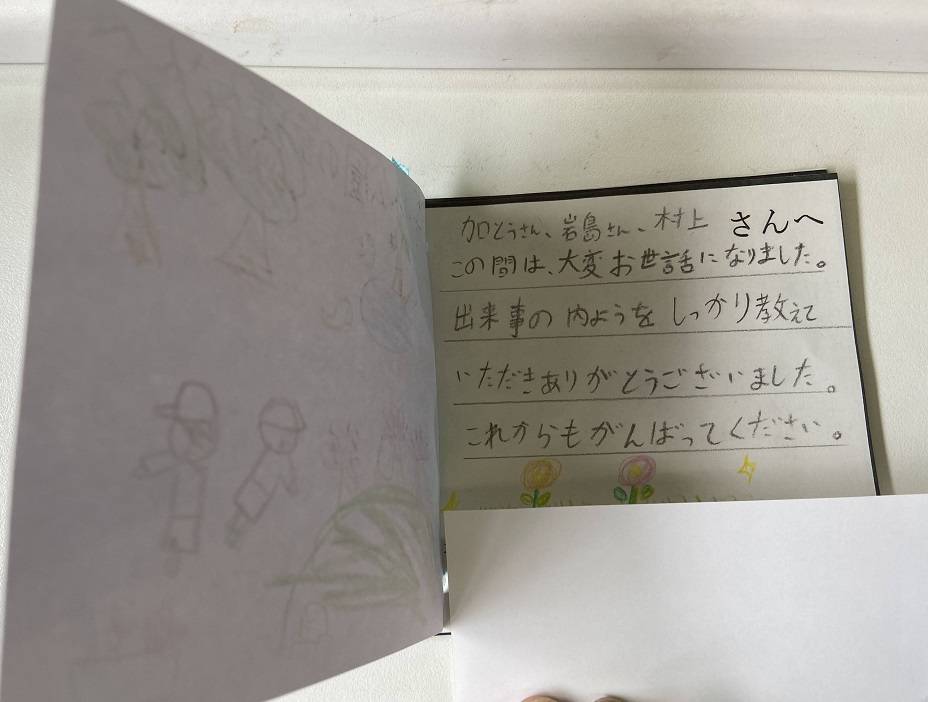 加とうさん、岩島さん、村上 さんへ
この間は、大変お世話になりました。
出来事の内ようを しっかり教えて
いただきありがとうございました。
これからもがんばってください。